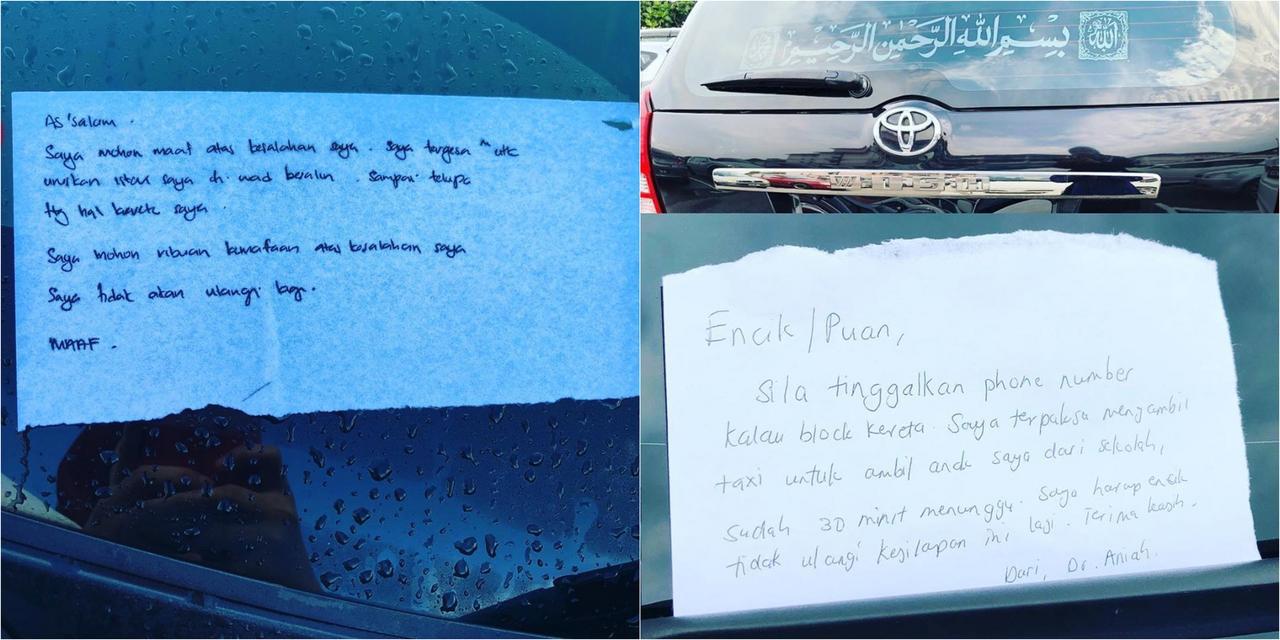 As'salam.
Saya mohon maaf atas kesalahan saya. Saya tergesa" utk
uruskan isteri saya di wad bersalin. Sampai telupa
ttg hal kereta saya.
Saya mohon ribuan kemaafan atas kesalahan saya
Saya tidak akan ulangi lagi.
MAAF.
بسم الله الرحمن الرحيم
الله
TOYOTA
Encik/Puan,
Sila tinggalkan phone number
kalau block kereta. Saya terpaksa mengambil
taxi untuk ambil anak saya dari sekolah,
sudah 30 minit menunggu. Saya harap encik
tidak ulangi kesilapan ini lagi. Terima kasih.
Dari, Dr. Aniah.